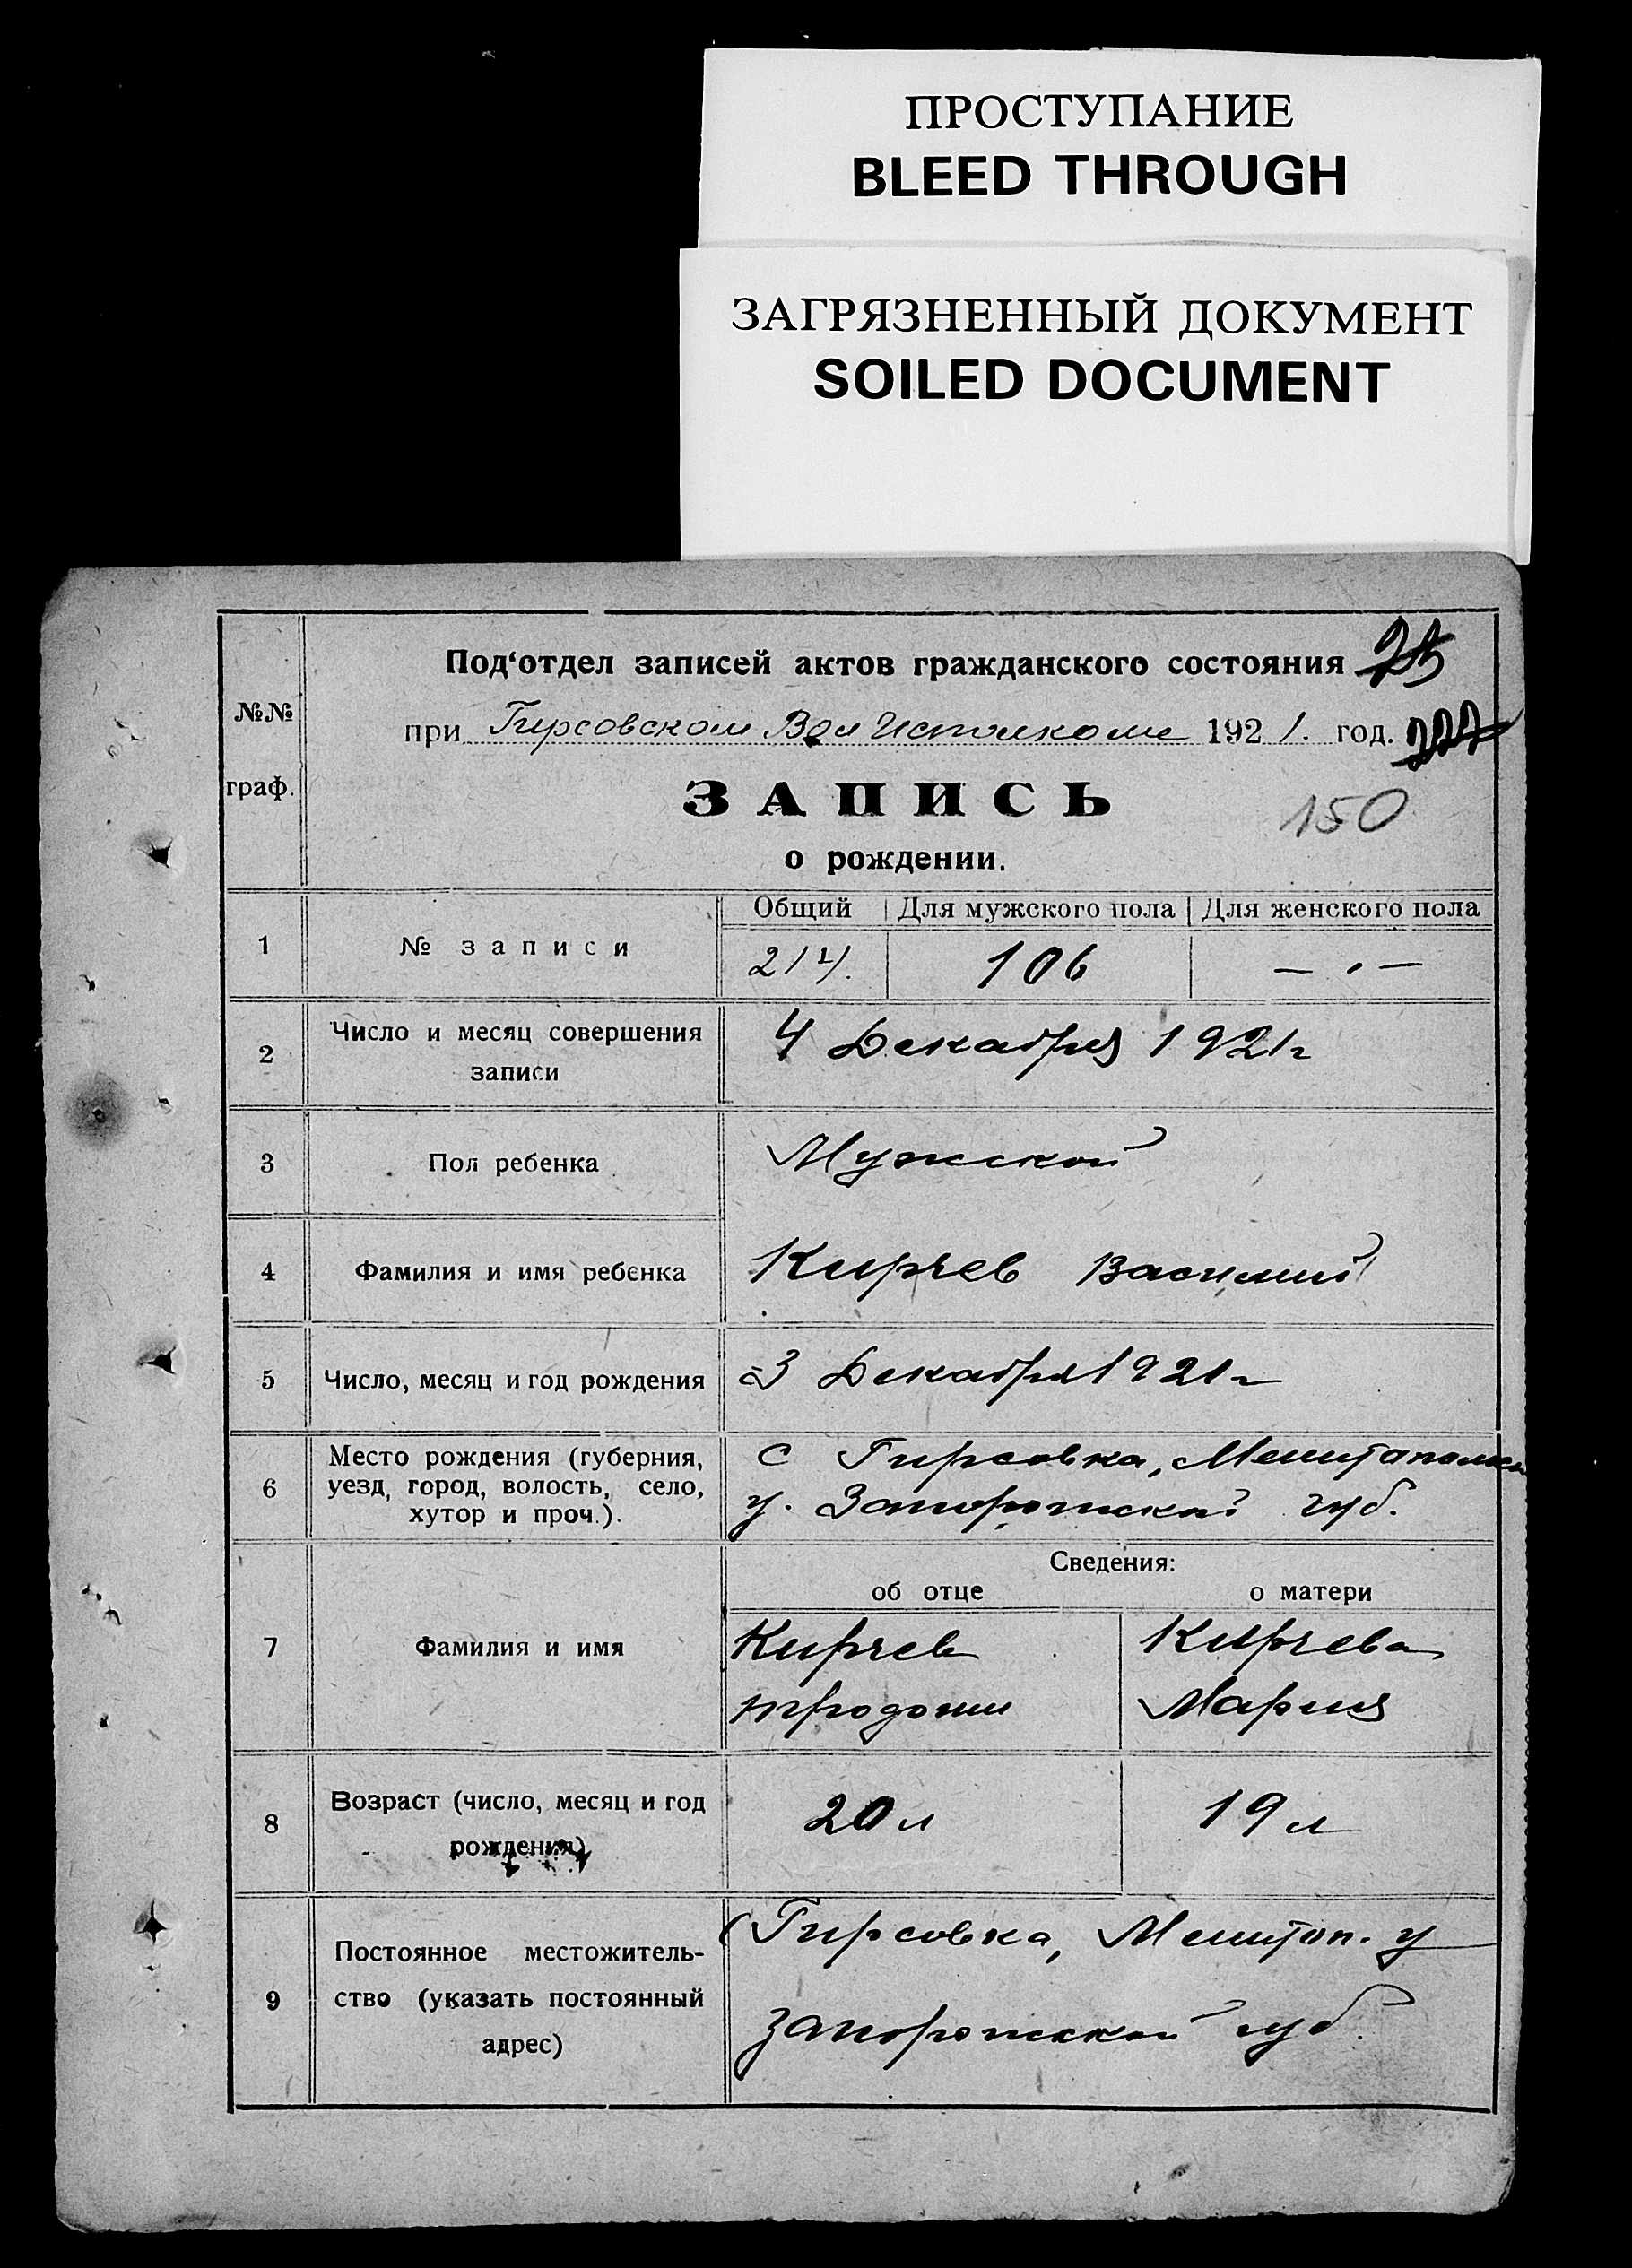 ПРОСТУПАНИЕ
BLEED THROUGH
ЗАГРЯЗНЕННЫЙ ДОКУМЕНТ
SOILED DOCUMENT
№№ граф.
Под‘отдел записей актов гражданского состояния 25
при Гирсовском Вол Исполкоме 1921. год. 222
ЗАПИСЬ
150
о рождении.
Общий Для мужского пола Для женского пола
1 № записи 214. 106 — · —
2 Число и месяц совершения 4 Декабря 1921 г
записи
3 Пол ребенка Мужской
4 Фамилия и имя ребенка Кирчев Василий
5 Число, месяц и год рождения 3 Декабря 1921 г
Место рождения (губерния, с Гирсовка, Мелитопольск
6 уезд, город, волость, село, у. Запорожской губ.
хутор и проч.).
Сведения:
об отце о матери
7 Фамилия и имя Кирчев Кирчева
Мария
8 Возраст (число, месяц и год 20 л 19 л
рождения)
Гирсовка, Мелитоп. у
9 Постоянное местожитель-
ство (указать постоянный Запорожской губ.
адрес)